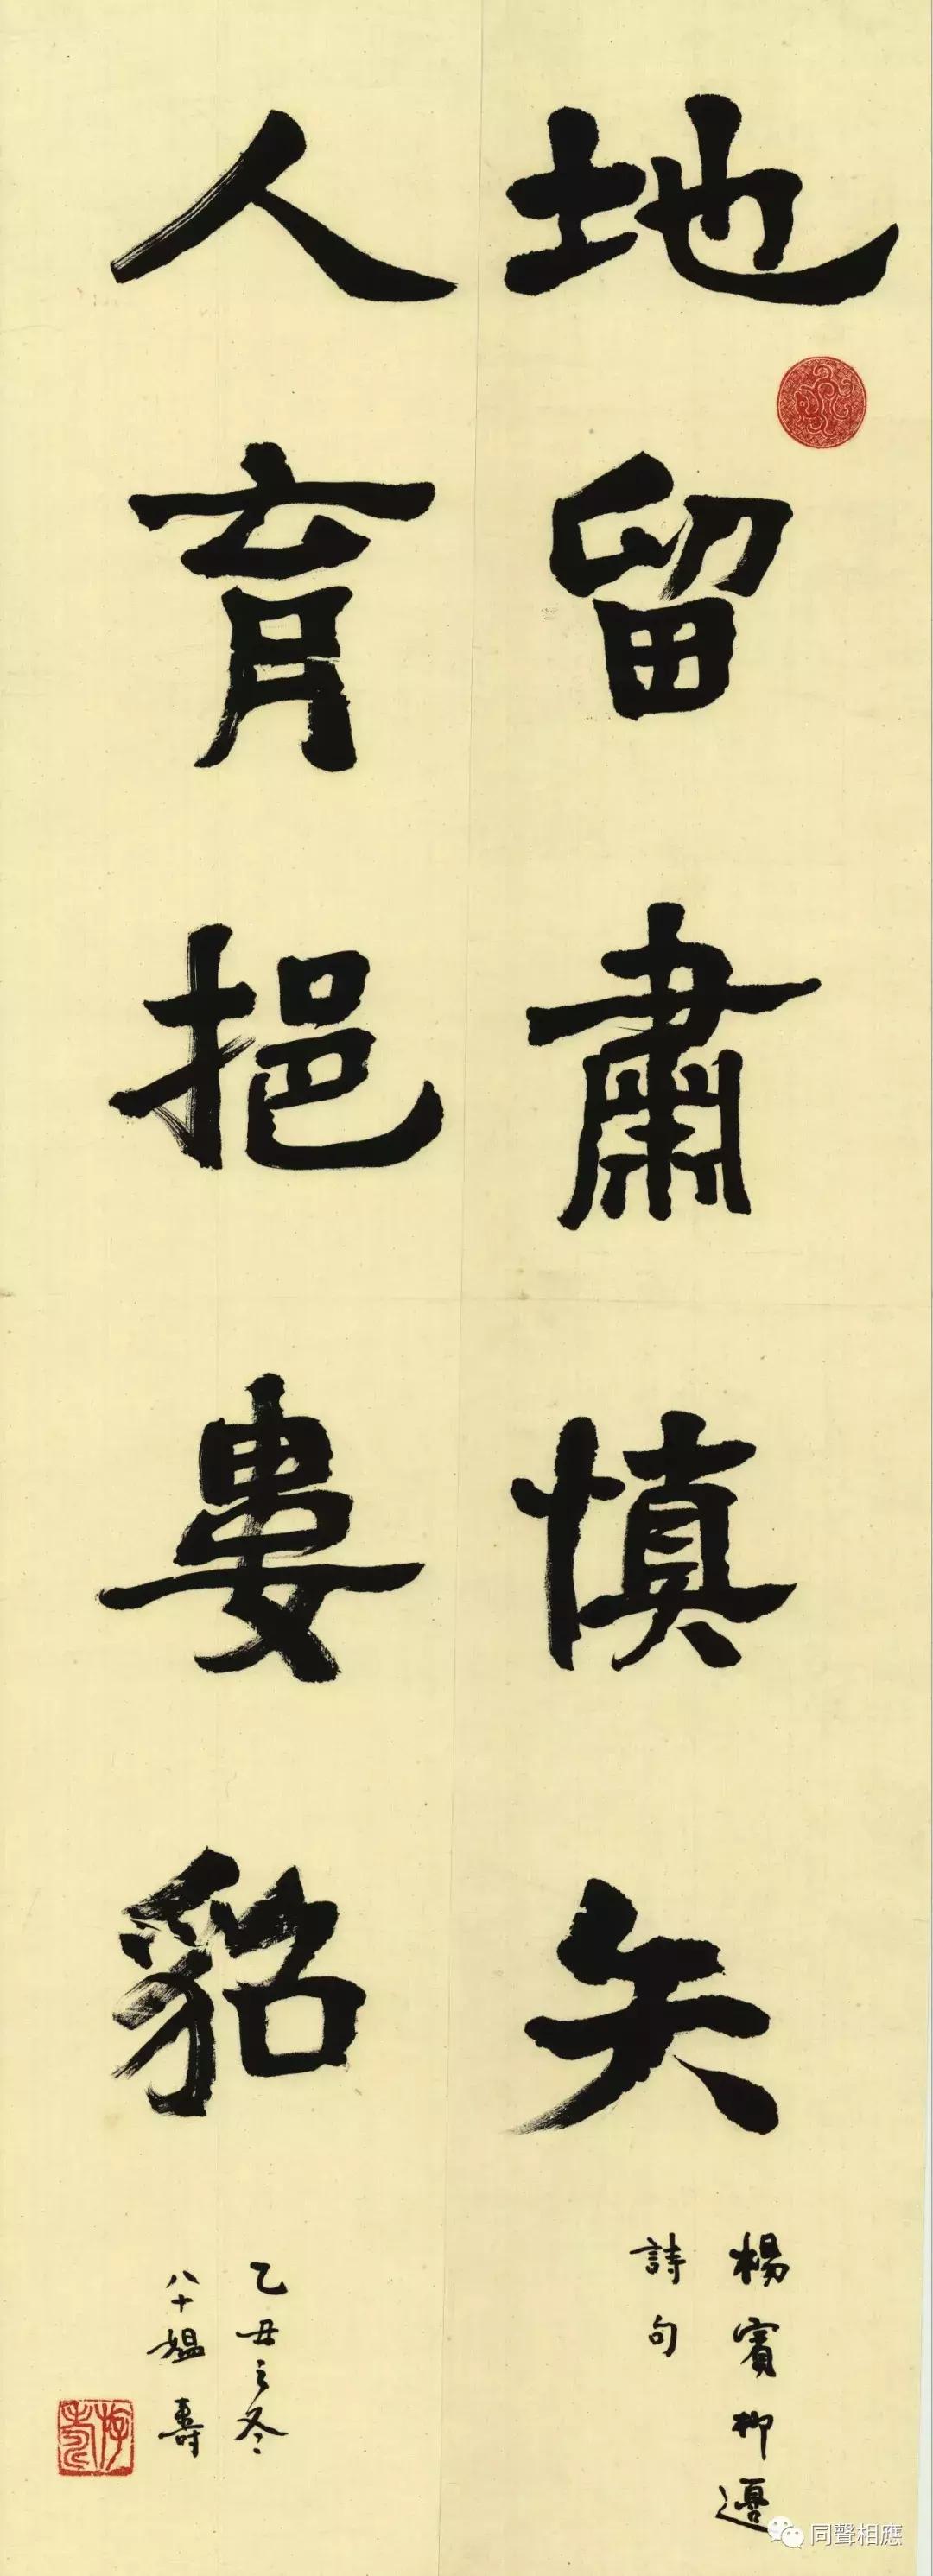 地留肅慎矢
楊賓柳邊
詩句
人育挹婁貂
乙丑之冬
八十媼壽
同聲相應